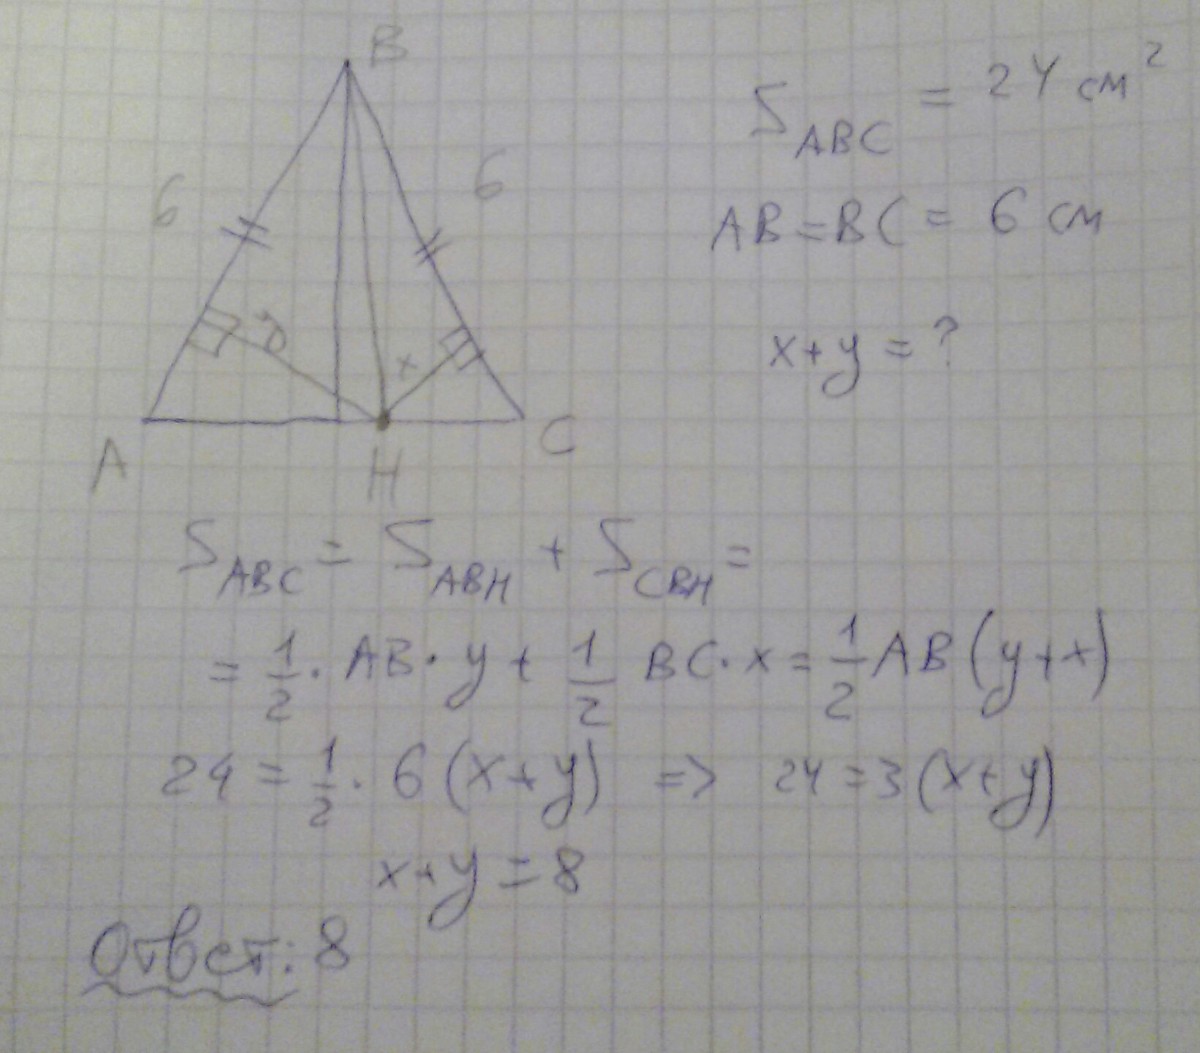 B
6
6
y
x
A
H
C
S_ABC = 24 см²
AB = BC = 6 см
x + y = ?
S_ABC = S_ABH + S_CBH =
= 1/2 · AB · y + 1/2 BC · x = 1/2 AB (y + x)
24 = 1/2 · 6 (x + y) => 24 = 3 (x + y)
x + y = 8
Ответ: 8